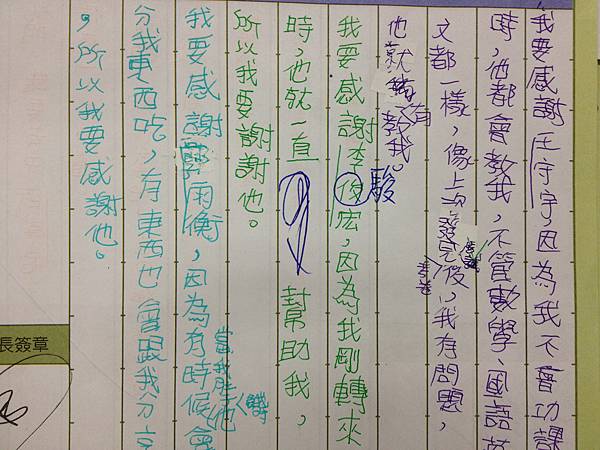 我要感謝王宇宇,因為我不會功課
時,他都會教我,不管數學、國語英
文都一樣,像上次發完考卷後,我有問題,
也就有教我。
我要感謝李俊宏,因為我剛轉來
駿
時,他就一直幫助我,
所以我要謝謝他。
我要感謝鄭雨衡,因為有時候會
當我肚子餓他
分我東西吃,有東西也會跟我分享
,所以我要感謝他。
長簽章